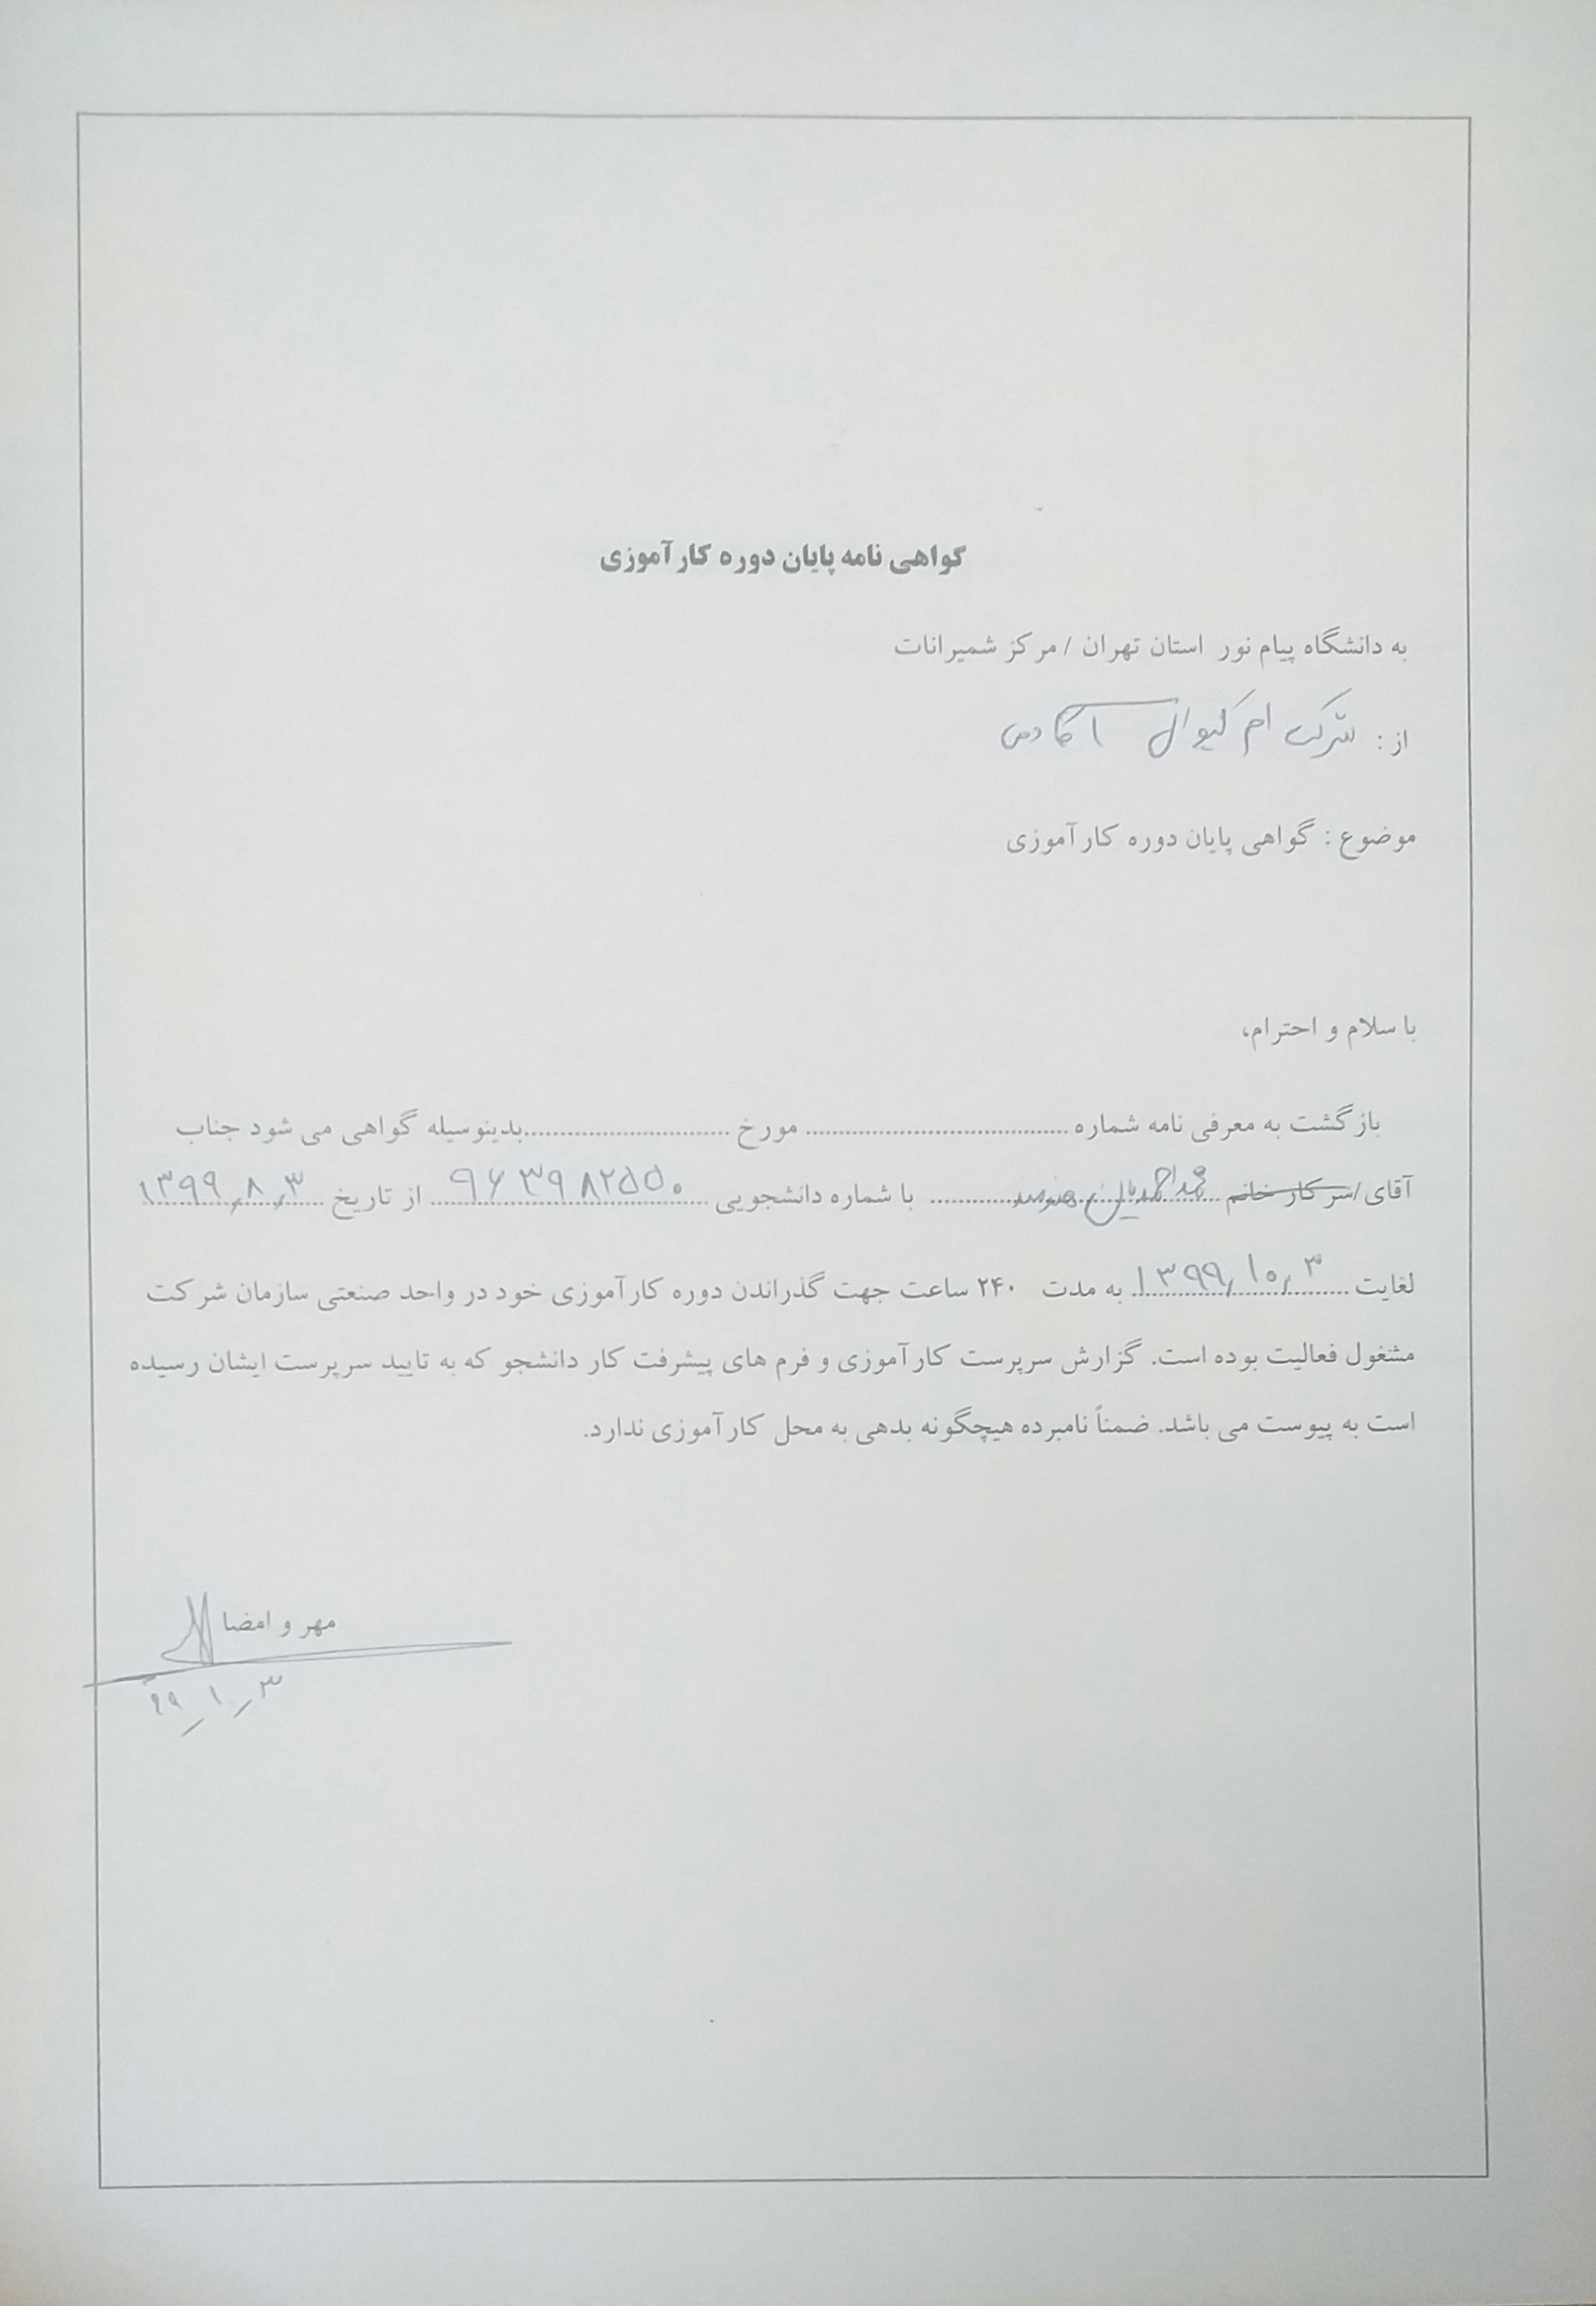 گواهی نامه پایان دوره کارآموزی
به دانشگاه پیام نور استان تهران / مرکز شمیرانات
از : شرکت ام کیوال آکادمی
موضوع : گواهی پایان دوره کارآموزی
با سلام و احترام،
بازگشت به معرفی نامه شماره ..................................... مورخ .............................بدینوسیله گواهی می شود جناب
آقای /سرکار خانم محمد احمدیان هنرمند با شماره دانشجویی ۹۶۳۹۸۲۵۵۰ از تاریخ ۱۳۹۹٫۸٫۳
لغایت ۱۳۹۹٫۱۰٫۳ به مدت ۲۴۰ ساعت جهت گذراندن دوره کارآموزی خود در واحد صنعتی سازمان شرکت
مشغول فعالیت بوده است. گزارش سرپرست کارآموزی و فرم های پیشرفت کار دانشجو که به تایید سرپرست ایشان رسیده
است به پیوست می باشد. ضمناً نامبرده هیچگونه بدهی به محل کارآموزی ندارد.
مهر و امضا